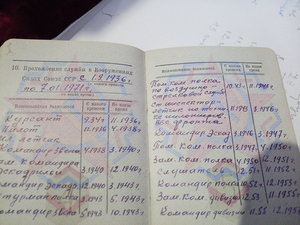 10. Прохождение службы в Вооруженных
Силах Союза ССР с 1.9.1936г.
по 7.01.1971г.
Наименование должностей
С какого времени
По какое время
Курсант 9.34г 11.1936г.
Пилот 11.1936 4.1938г.
летчик
Командир звена 4.1938 3.1940г.
Зам. командира
эскадрильи 3.1940 12.1940г.
Командир эскадр. 12.1940 3.1943г.
Штурман полка 3.1943 5.1943г.
Командир эскад 5.1943 10.1943г.
Наименование должностей
С какого времени
По какое время
Пом. ком. полка
по воздушно-
стрелковой службе 10.43 11.1943г.
Ст. инспектор-
летчик по технике 11.1943 3.1946г.
пилотирования
ВВС фронта
Командир 3.1946 3.1947г.
Пом. Ком. полка 3.1947 4.1950г.
Зам. ком. полка 4.1950 12.1951г.
Слушатель 12.51 11.1952г.
Командир полка 11.1952 12.1953г.
Зам. Ком. дивизии 12.53 11.1955г.
Командир дивизии 11.55 12.19